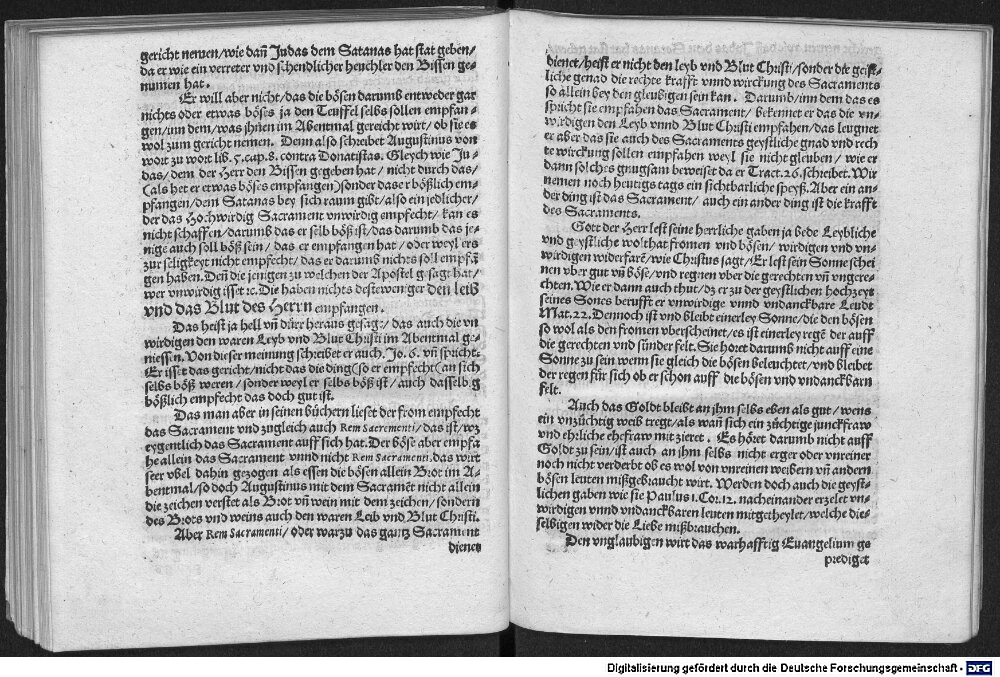 gericht nemen/wie dañ Judas dem Satanas hat stat geben/
da er wie ein verreter vnd schendlicher heuchler den Bissen ge-
numen hat.
Er will aber nicht/das die bösen darumb entweder gar
nichts oder etwas böses ja den Teuffel selbs sollen empfan-
gen/inn dem/was jhnen im Abentmal gereicht wirt/ob sie es
wol zum gericht nemen. Denn also schreibet Augustinus von
wort zu wort lib. 5. cap. 8. contra Donatistas. Gleych wie Ju-
das/dem der Herr den Bissen gegeben hat/ nicht durch das/
(als het er etwas böses empfangen)sonder das er bößlich em-
pfangen/dem Satanas bey sich raum gibt/also ein jedlicher/
der das Hochwirdig Sacrament vnwirdig empfecht/ kan es
nicht schaffen/darumb das er selb böß ist/das darumb das je-
nige auch soll böß sein/ das er empfangen hat/ oder weyl ers
zur seligkeyt nicht empfecht/das er darumb nichts soll empfã
gen haben. Deñ die jenigen zu welchen der Apostel gesagt hat/
wer vnwirdig isset ⁊c. Die haben nichts desteweniger den leib
vnd das Blut des Herrn empfangen.
Das heist ja hell vñ dürr heraus gesagt/ das auch die vn
wirdigen den waren Leyb vnd Blut Christi im Abentmal ge-
niessen. Von dieser meinung schreibet er auch. Jo. 6. vñ spricht.
Er isset das gericht/nicht das die ding(so er empfecht(an sich
selbs böß weren/ sonder weyl er selbs böß ist/ auch dasselbig
bößlich empfecht das doch gut ist.
Das man aber in seinen büchern lieset der from empfecht
das Sacrament vnd zugleich auch Rem Sacrementi/das ist/wz
eygentlich das Sacrament auff sich hat. Der böse aber empfa
he allein das Sacrament vnnd nicht Rem Sacramenti. das wirt
seer vbel dahin gezogen als essen die bösen allein Brot im A-
bentmal/so doch Augustinus mit dem Sacramẽt nicht allein
die zeichen verstet als Brot vñ wein mit dem zeichen/ sondern
des Brots vnd weins auch den waren Leib vnd Blut Christi.
Aber Rem Sacramenti/ oder warzu das gantz Sacrament
dienet
dienet/heist er nicht den leyb vnd Blut Christi/sonder die geist-
liche genad die rechte krafft vnnd wirckung des Sacraments
so allein bey den gleubigen sein kan. Darumb/inn dem das es
spricht sie empfahen das Sacrament/ bekennet er das die vn-
wirdigen den Leyb vnnd Blut Christi empfahen/das leugnet
er aber das sie auch des Sacraments geystliche gnad vnd rech
te wirckung sollen empfahen weyl sie nicht gleuben/ wie er
dann solches gnugsam beweiset da er Tract. 26. schreibet. Wir
nemen noch heutigs tags ein sichtbarliche speyß. Aber ein an-
der ding ist das Sacrament/ auch ein ander ding ist die krafft
des Sacraments.
Gott der Herr lest seine herrliche gaben ja bede Leybliche
vnd geystliche wolthat fromen vnd bösen/ wirdigen vnd vn-
wirdigen widerfarẽ/wie Christus sagt/Er lest sein Sonne schei
nen vber gut vñ böse/vnd regnen vber die gerechten vñ vngere-
chten. Wie er dann auch thut/dz er zu der geystlichen hochzeyt
seines Sones berufft er vnwirdige vnnd vndanckbare Leudt
Mat. 22. Dennoch ist vnd bleibt einerley Sonne/die den bösen
so wol als den fromen vberscheinet/es ist einerley regẽ der auff
die gerechten vnd sünder felt. Sie höret darumb nicht auff eine
Sonne zu sein wenn sie gleich die bösen beleuchtet/vnd bleibet
der regen für sich ob er schon auff die bösen vnd vndanckbarn
felt.
Auch das Goldt bleibt an jhm selbs eben als gut/ wens
ein vnzüchtig weib tregt/als wañ sich ein züchtige junckfraw
vnd ehrliche ehefraw mit zieret. Es höret darumb nicht auff
Goldt zu sein/ist auch an jhm selbs nicht erger oder vnreiner
noch nicht verderbt ob es wol von vnreinen weibern vñ andern
bösen leuten mißgebraucht wirt. Werden doch auch die geyst-
lichen gaben wie sie Paulus 1. Cor. 12. nacheinander erzelet vn-
wirdigen vnnd vndanckbaren leuten mitgetheylet/welche die-
selbigen wider die Liebe mißbrauchen.
Den vnglaubigen wirt das warhafftig Euangelium ge
prediget
Digitalisierung gefördert durch die Deutsche Forschungsgemeinschaft - DFG